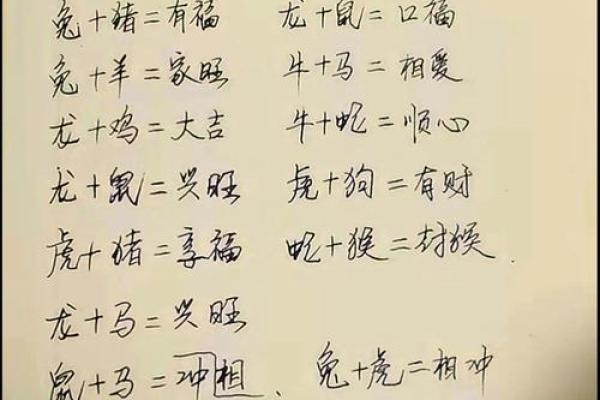 兔+猪=有福 龙+鼠=口福
兔+羊=家旺 牛+马=相爱
龙+鸡=大吉 牛+蛇=顺心
龙+鼠=兴旺 虎+狗=有财
虎+猪=享福 蛇+猴=封猴.
龙+马=兴旺
鼠+马=冲相、 兔+虎=相冲